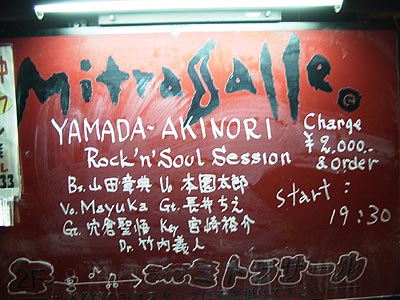 Mitrasalle。
YAMADA-AKINORI
Rock'n'Soul Session
Charge
¥2,000-
& Order
Bs.山田章典 Vo 本園太郎
Vo. Mayuka Gt. 長井ちえ
Gt. 穴倉聖悟 Key 宮崎裕介
Dr. 竹内義人
Start:
19:30
33
2F
ミトラサール